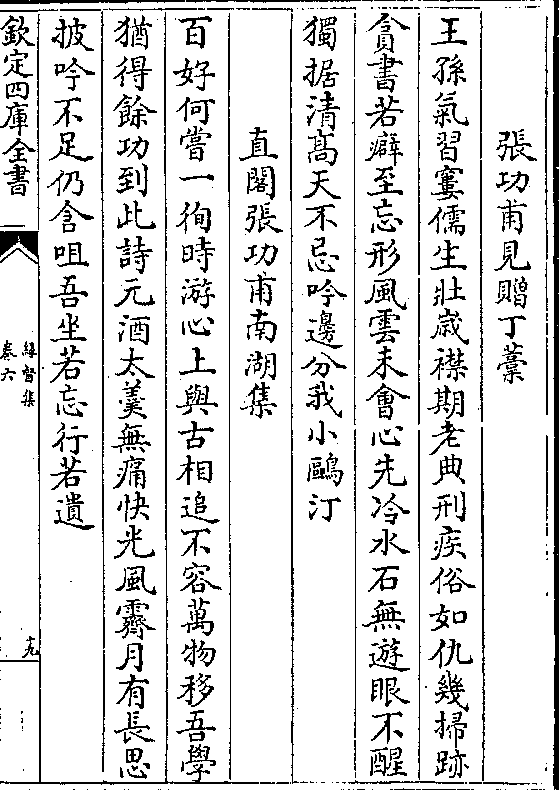 張功甫見贈丁藁
王孫氣習寠儒生壯歳襟期老典刑疾俗如仇幾掃跡
貪書若癖至忘形風雲未㑹心先冷水石無遊眼不醒
獨据清髙天不忌吟邊分我小鷗汀
直閣張功甫南湖集
百好何嘗一徇時游心上與古相追不容萬物移吾學
猶得餘功到此詩元酒太羹無痛快光風霽月有長思
披吟不足仍含咀吾坐若忘行若遺
欽定四庫全書
緣督集
卷六
十九